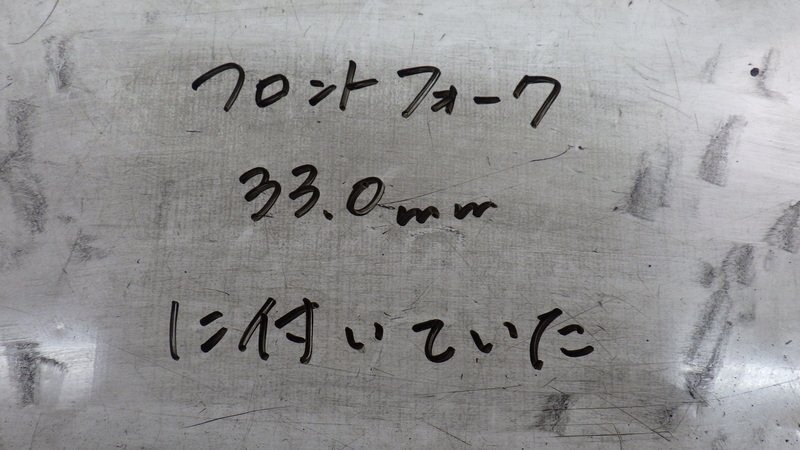 フロントフォーク
33.0mm
に付いていた